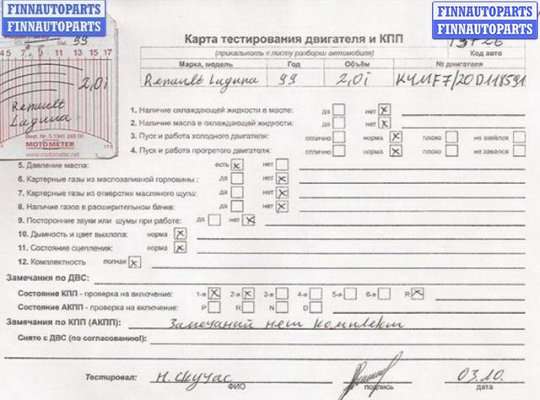 FINNAUTOPARTS
FINNAUTOPARTS
FINNAUTOPARTS
FINNAUTOPARTS
99
4 5 7 9 11 13 15 17
2,0i
Renault
Laguna
MOTOMETER
www.motometer.net
Карта тестирования двигателя и КПП
(прикальность к листу разборки автомобиля)
Код авто
Марка, модель Год Объём № двигателя
Renault Laguna 99 2,0i
1. Наличие охлаждающей жидкости в масле: да нет
2. Наличие масла в охлаждающей жидкости: да нет
3. Пуск и работа холодного двигателя: отлично норма плохо не завёлся
4. Пуск и работа прогретого двигателя: отлично норма плохо не завёлся
5. Давление масла: есть нет
6. Картерные газы из маслозаливной горловины: да нет
7. Картерные газы из отверстия масляного щупа: да нет
8. Наличие газов в расширительном бачке: да нет
9. Посторонние звуки или шумы при работе: да нет
10. Дымность и цвет выхлопа: норма
11. Состояние сцепления: норма
12. Комплектность полная
Замечания по ДВС:
Состояние КПП - проверка на включение: 1-я 2-я 3-я 4-я 5-я 6-я R
Состояние АКПП - проверка на включение: P R N D
Замечания по КПП (АКПП): Замечаний нет комплект
Снято с ДВС (по согласованию!):
Тестировал: Н. Скучас 03.10.
ФИО подпись дата